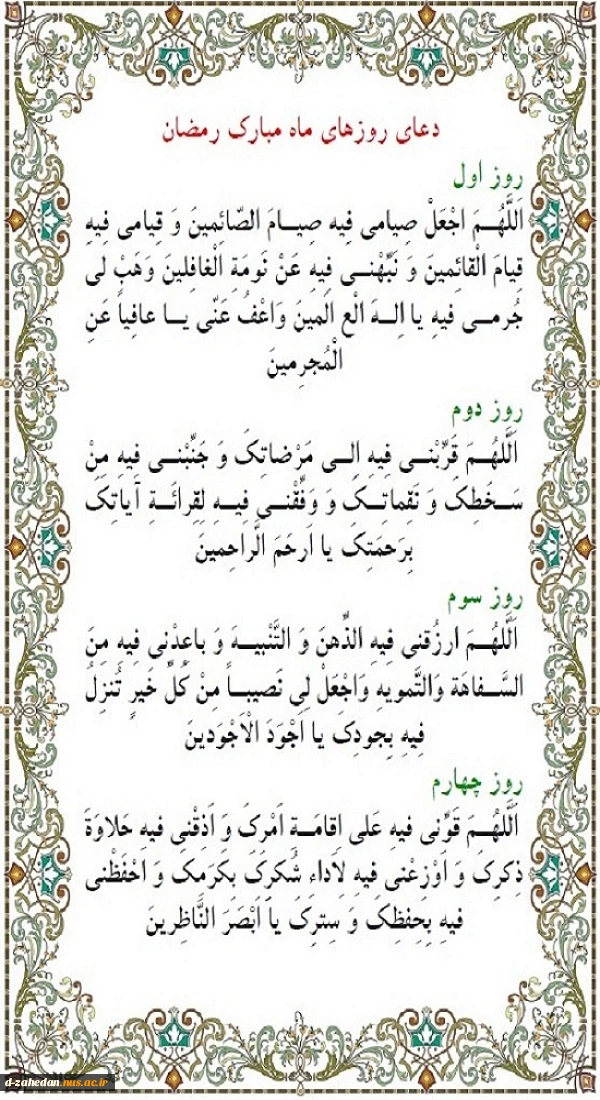 دعای روزهای ماه مبارک رمضان
روز اول
اَللَّهُمَ اجْعَلْ صِیامی فِیه صِیامَ الصّائِمینَ وَ قِیامی فِیهِ
قِیامَ الْقائِمینَ وَ نَبِّهْنی فِیهِ عَنْ نَومَةِ الْغافِلینَ وَهَبْ لی
جُرمی فِیهِ یا اِلهَ الْع الَمینَ وَاعْفُ عَنّی یا عافِیاً عَنِ
الْمُجرِمینَ
روز دوم
اَلَّلهُمَ قَرِّبْنی فِیهِ اِلی مَرْضاتِکَ وَ جَنِّبْنی فِیهِ مِنْ
سَخَطِکَ وَ نَقِماتِکَ وَ وَفِّقْنی فِیهِ لِقِرائَةِ آیاتِکَ
بِرَحمَتِکَ یا اَرحَمَ الَّراحِمینَ
روز سوم
اَلَّلهُمَ ارزُقنی فِیهِ الذِّهنَ وَ التَّنْبیهَ وَ باعِدْنِی فِیهِ مِنَ
السَّفاهَة وَالتَّمویهِ وَاجْعَلْ لِی نَصیباً مِنْ کُلِّ خَیرٍ تُنزِلُ
فِیهِ بِجودِکَ یا اَجْوَدَ الْاَجْوَدینَ
روز چهارم
اَلَّلهُمَ قَوِّنی فیهِ عَلی اِقامَةِ اَمْرِکَ وَ اَذِقْنی فیهِ حَلاوَةَ
ذِکرِکَ وَ اَوْزِعْنی فیهِ لِاَداءِ شُکرِکَ بِکَرَمِکَ وَ احْفَظْنی
فیهِ بِحِفظِکَ وَ سِترِکَ یا اَبْصَرَ النَّاظِرینَ
d-zahedan.nus.ac.ir